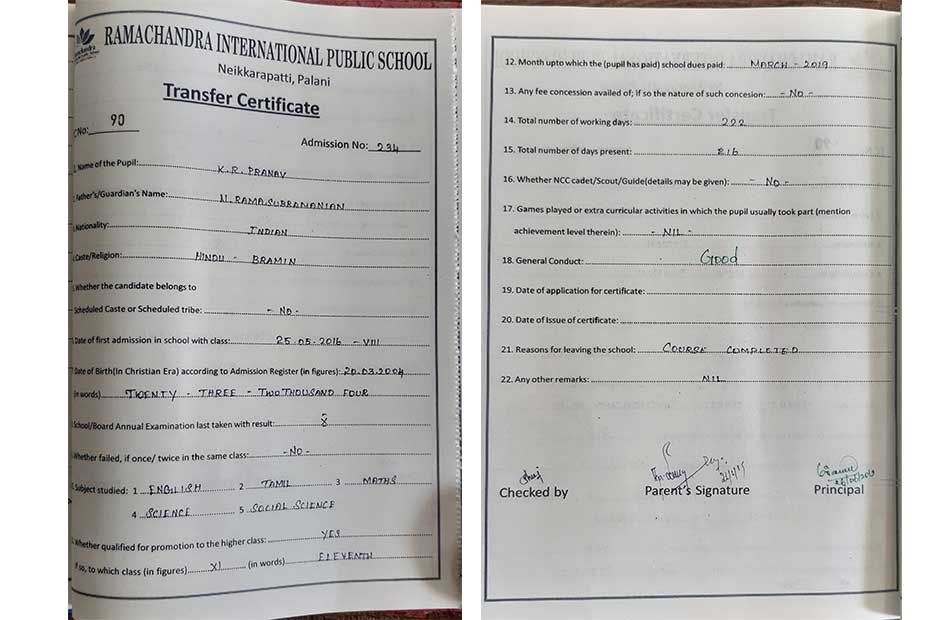 RAMACHANDRA INTERNATIONAL PUBLIC SCHOOL
Neikkarapatti, Palani
Transfer Certificate
No: 90
Admission No: 234
Name of the Pupil: K.R. PRANAV
Father's/Guardian's Name: N. RAMASUBRAMANIAN
Nationality: INDIAN
Caste/Religion: HINDU - BRAMIN
Whether the candidate belongs to
Scheduled Caste or Scheduled tribe: - NO -
Date of first admission in school with class: 25.05.2016 - VIII
Date of Birth(In Christian Era) according to Admission Register (in figures): 20.03.2004
(in words) TWENTY - THREE - TWO THOUSAND FOUR
School/Board Annual Examination last taken with result:
Whether failed, if once/ twice in the same class: - NO -
Subject studied: 1 ENGLISH 2 TAMIL 3 MATHS
4 SCIENCE 5 SOCIAL SCIENCE
Whether qualified for promotion to the higher class: YES
If so, to which class (in figures) XI (in words) ELEVENTH
12. Month upto which the (pupil has paid) school dues paid: MARCH - 2019
13. Any fee concession availed of; if so the nature of such concesion: - NO -
14. Total number of working days: 222
15. Total number of days present: 216
16. Whether NCC cadet/Scout/Guide(details may be given): - NO -
17. Games played or extra curricular activities in which the pupil usually took part (mention
achievement level therein): - NIL -
18. General Conduct: Good
19. Date of application for certificate:
20. Date of Issue of certificate:
21. Reasons for leaving the school: COURSE COMPLETED
22. Any other remarks: NIL
Checked by Parent's Signature Principal